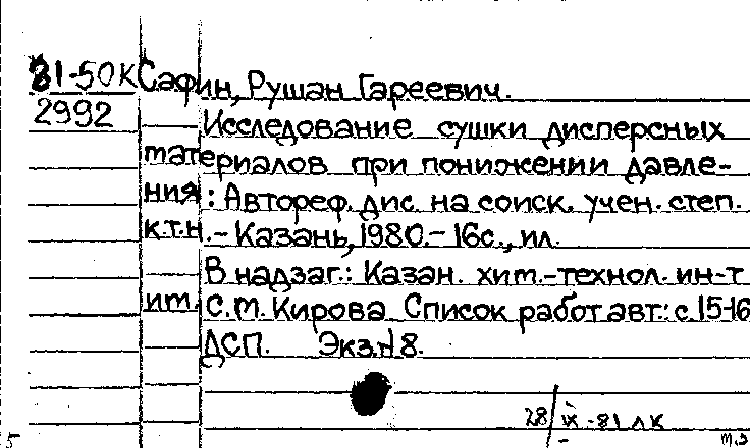 81-50К Сафин, Рушан Гареевич.
2992 Исследование сушки дисперсных
материалов при понижении давле-
ния: Автореф. дис. на соиск. учен. степ.
к.т.н. - Казань, 1980. - 16с., ил.
В надзаг.: Казан. хим.-технол. ин-т
им. С.М. Кирова. Список работ авт.: с.15-16
ДСП. Экз.№8.
28/IX-81 ЛК
5 т.з